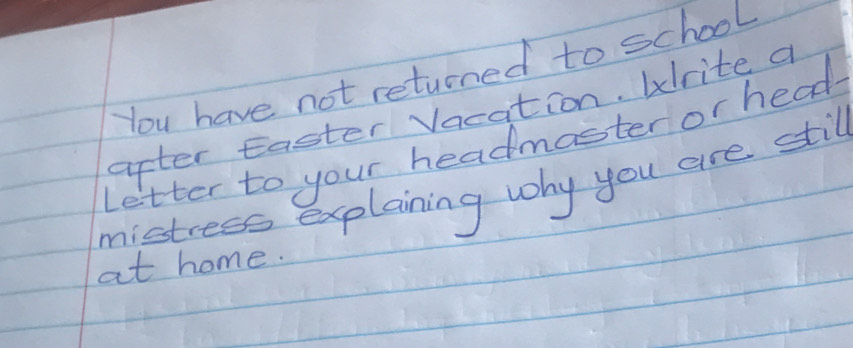 You have not returned to school
after Easter Vacation. Write a
Letter to your headmaster or head-
mistress explaining why you are still
at home.